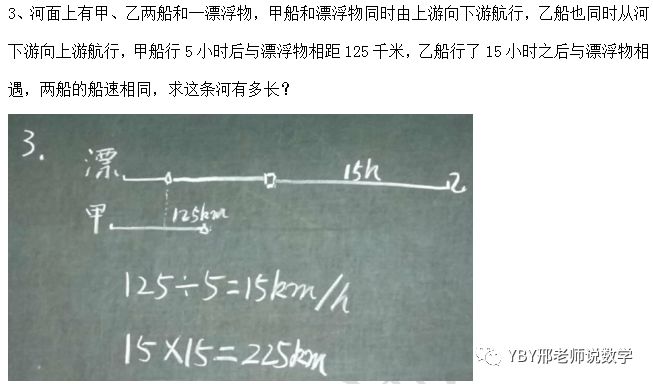 3、河面上有甲、乙两船和一漂浮物，甲船和漂浮物同时由上游向下游航行，乙船也同时从河
下游向上游航行，甲船行 5 小时后与漂浮物相距 125 千米，乙船行了 15 小时之后与漂浮物相
遇，两船的船速相同，求这条河有多长？
3.
漂
15h
乙
甲
125km
125÷5=15km/h
15×15=225km
YBY邢老师说数学